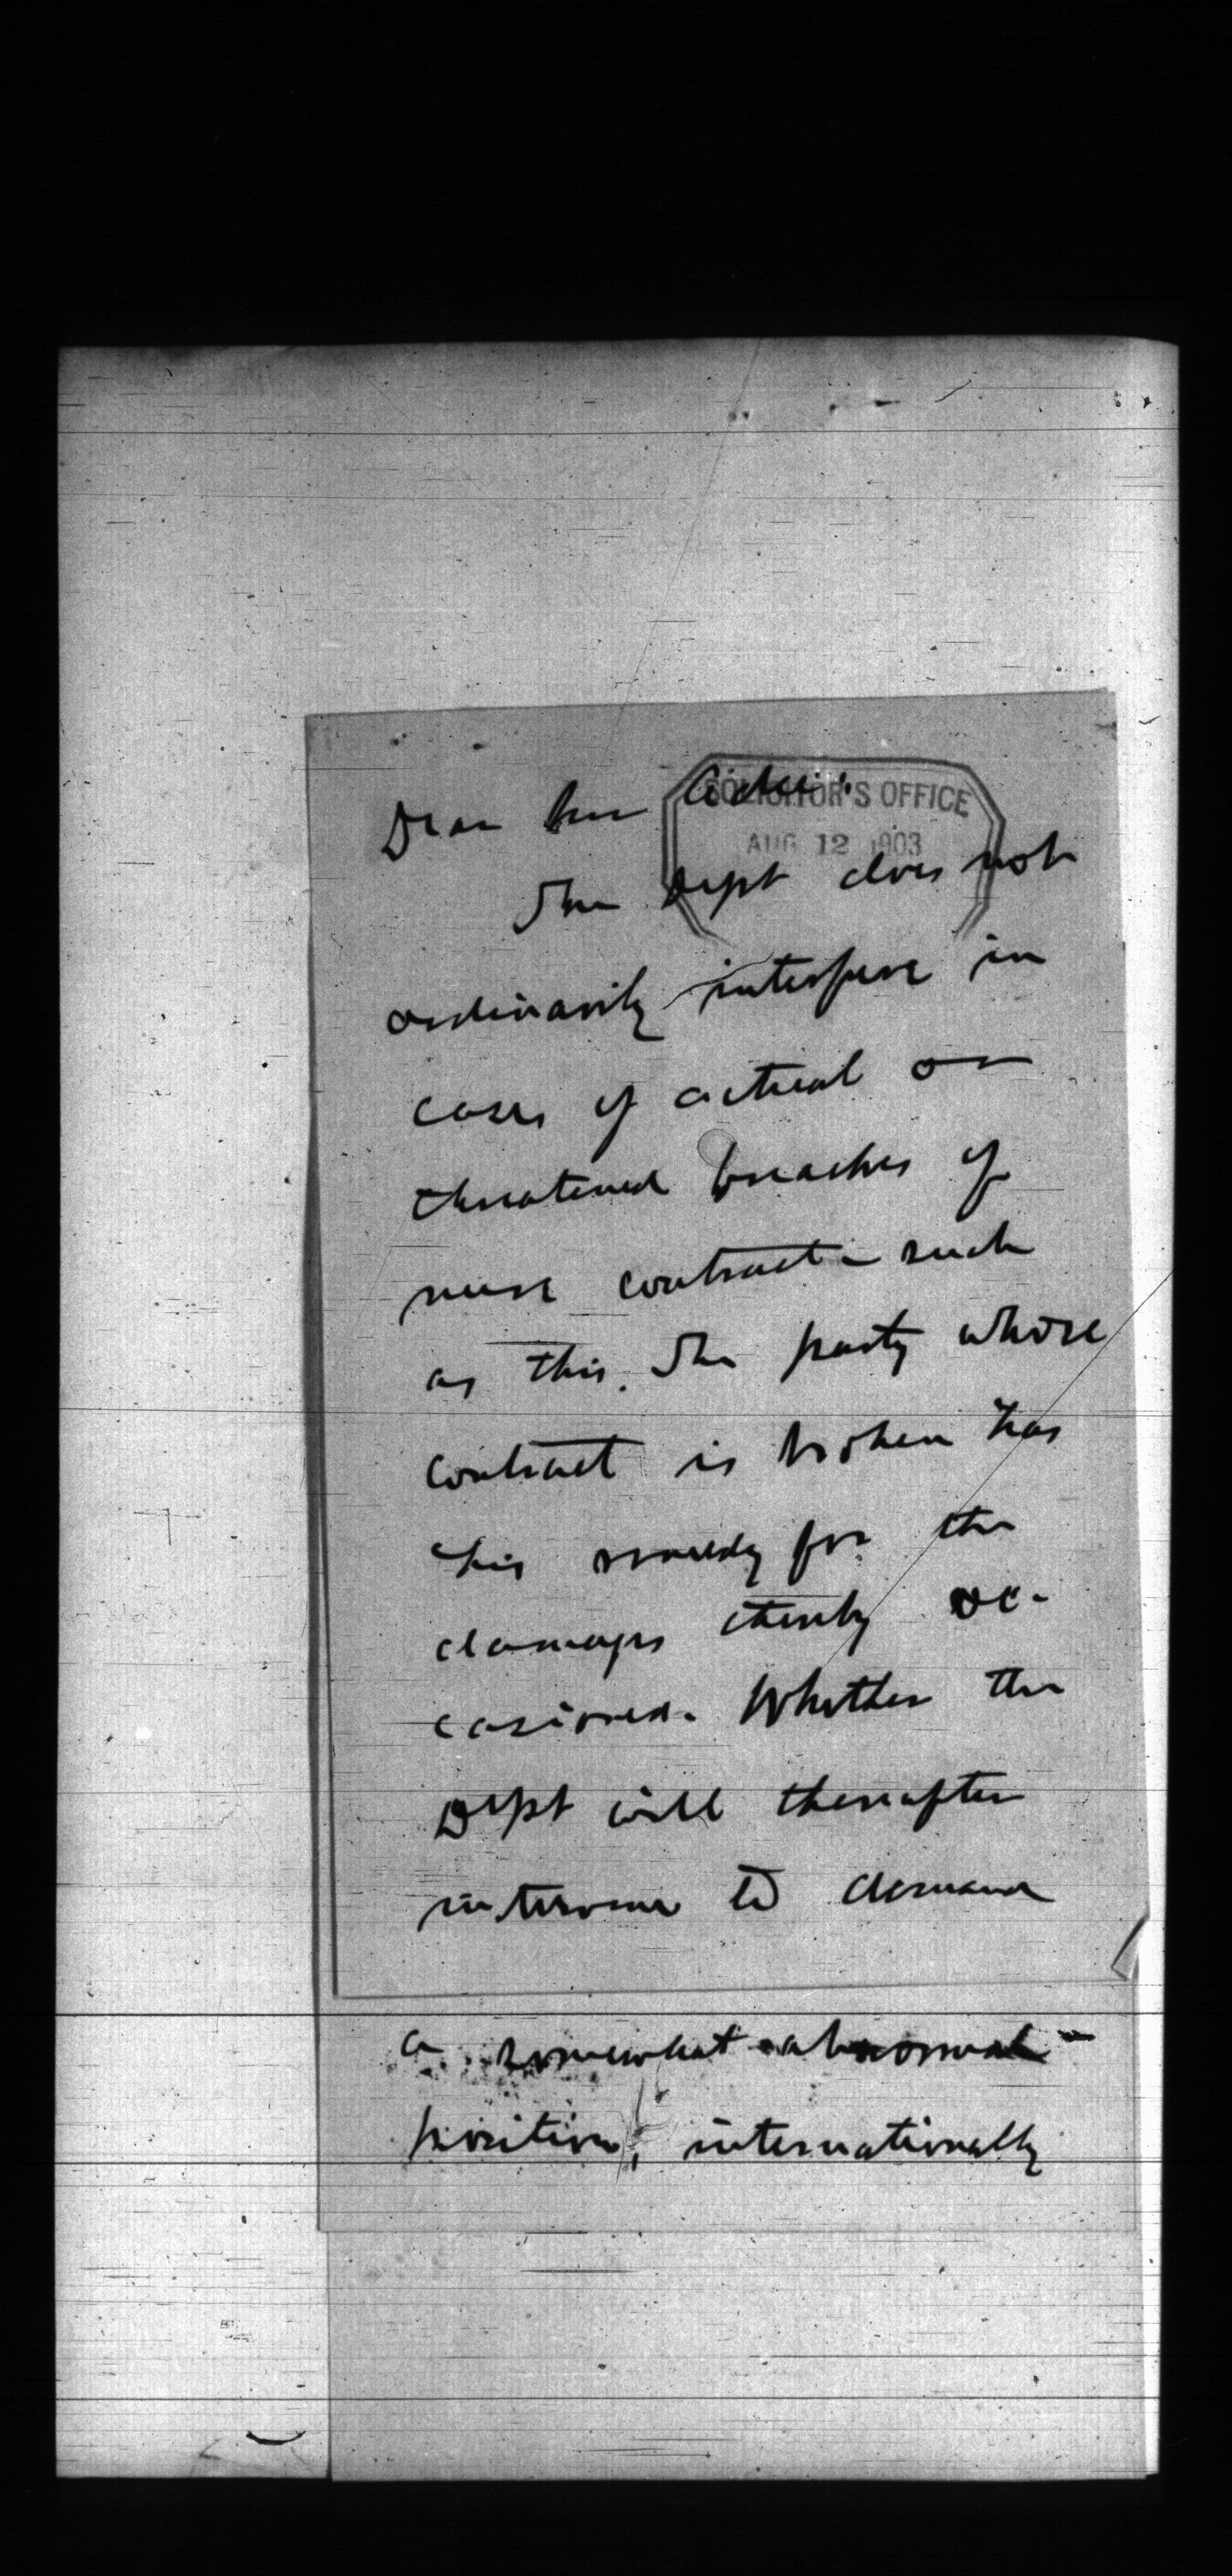 Dear Mr Adee:
SOLICITOR'S OFFICE
AUG 12 1903
The Dept does not
ordinarily interfere in
cases of actual or
threatened breaches of
mere contract - such
as this. The party whose
contract is broken has
his remedy for the
damages thereby oc-
casioned. Whether the
Dept will thereafter
intervene to demand
a somewhat abnormal
position, internationally